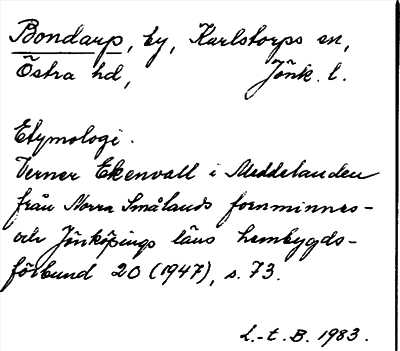 Bondarp, by, Karlstorps sn,
Östra hd, Jönk. l.
Etymologi.
Verner Ekenvall i Meddelanden
från Norra Smålands fornminnes-
och Jönköpings läns hembygds-
förbund 20 (1947), s. 73.
L.-t. B. 1983.